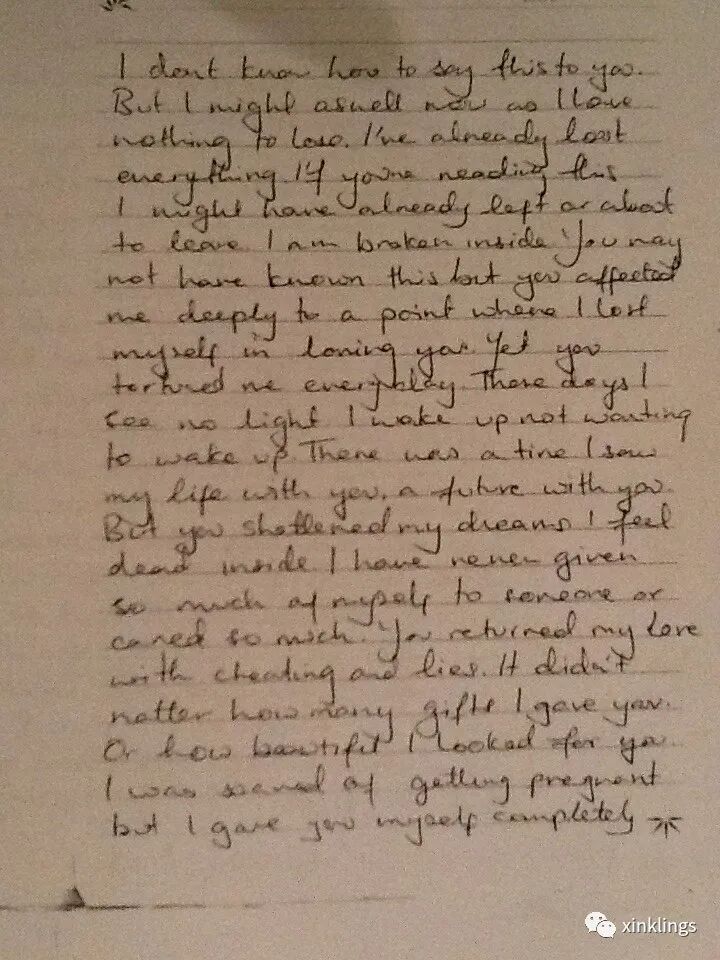 I dont know how to say this to you.
But I might aswell now as I have
nothing to lose. I've already lost
everything If you're reading this
I might have already left or about
to leave I am broken inside You may
not have known this but you affected
me deeply to a point where I lost
myself in loving you. Yet you
tortured me everyday These days I
see no light I wake up not wanting
to wake up. There was a time I saw
my life with you, a future with you.
But you shattered my dreams I feel
dead inside I have never given
so much of myself to someone or
cared so much. You returned my love
with cheating and lies. It didn't
matter how many gifts I gave you.
Or how beautiful I looked for you.
I was scared of getting pregnant
but I gave you myself completely
xinklings